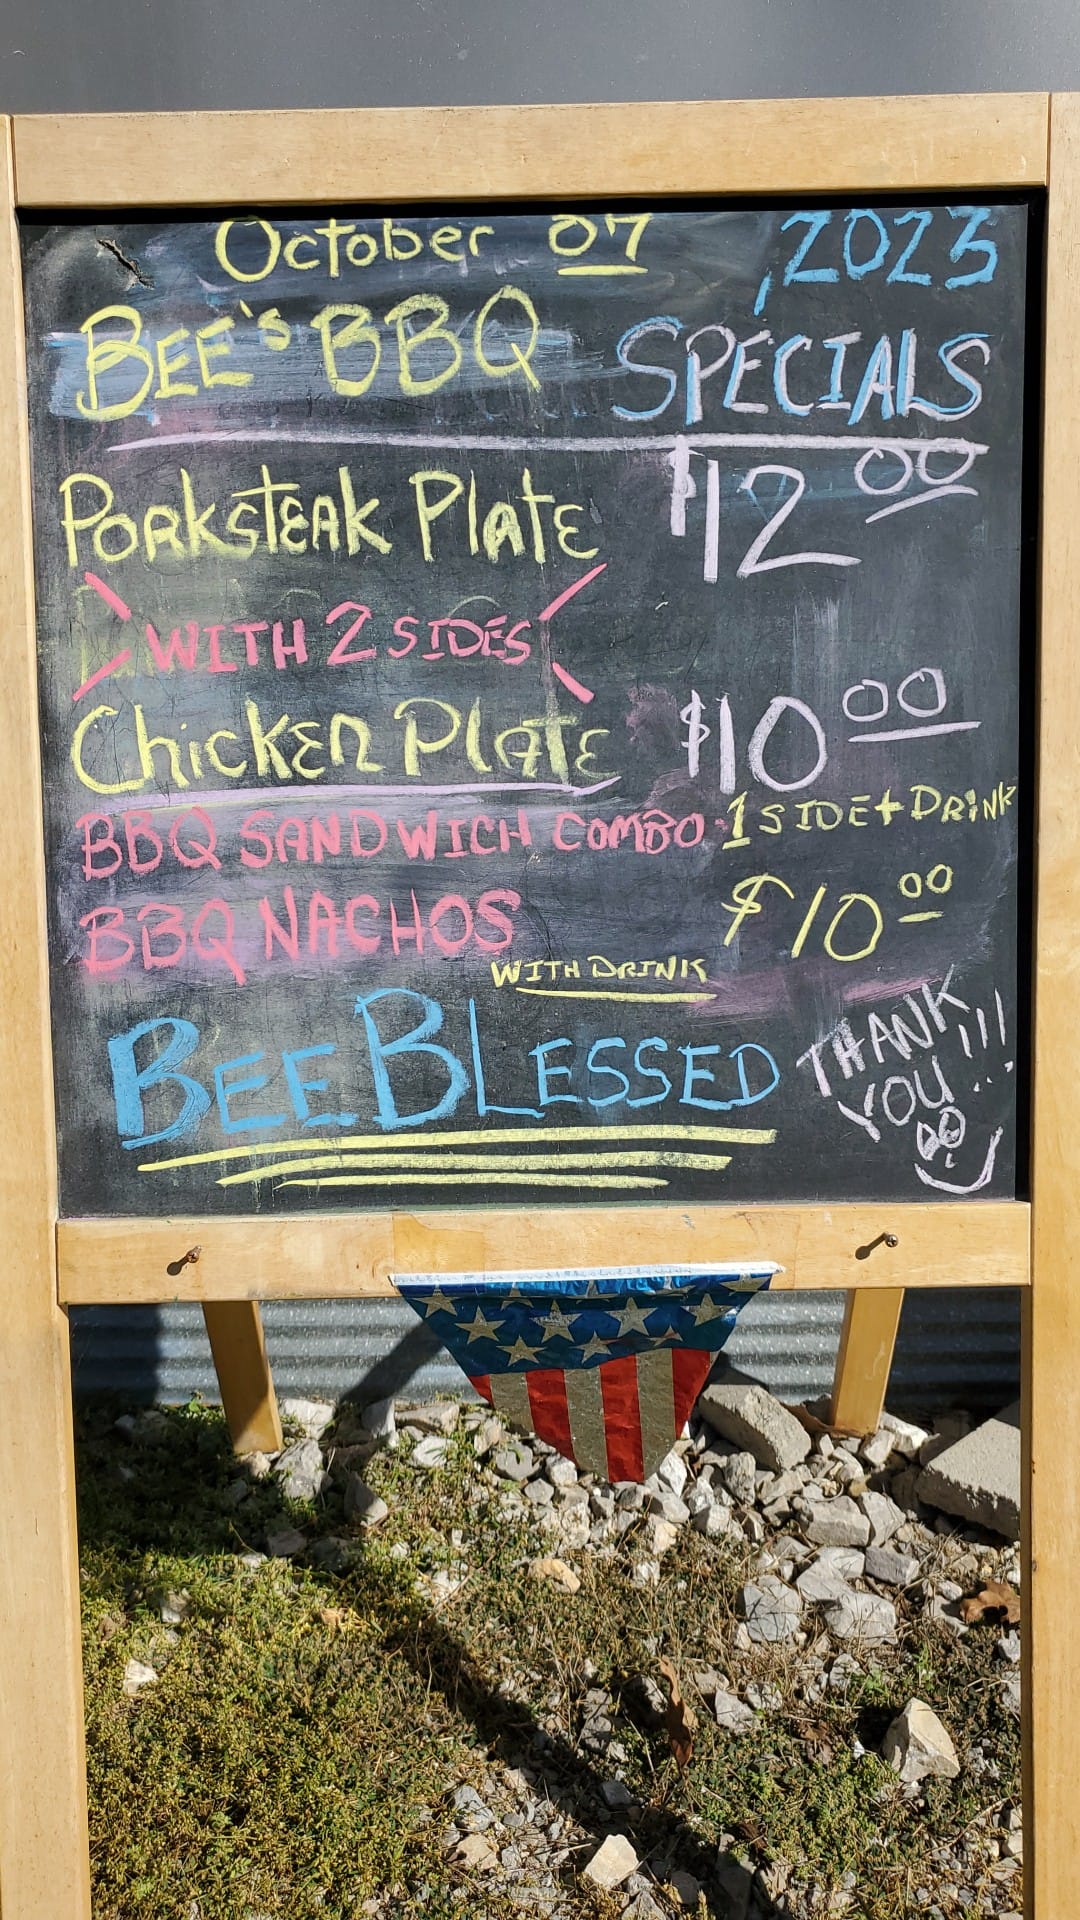 October 07, 2023
BEE'S BBQ SPECIALS
PORKSTEAK PLATE $12 00
WITH 2 SIDES
CHICKEN PLATE $10 00
BBQ SANDWICH COMBO 1 SIDE + DRINK
BBQ NACHOS $10 00
WITH DRINK
BEE BLESSED
THANK
YOU!!!...